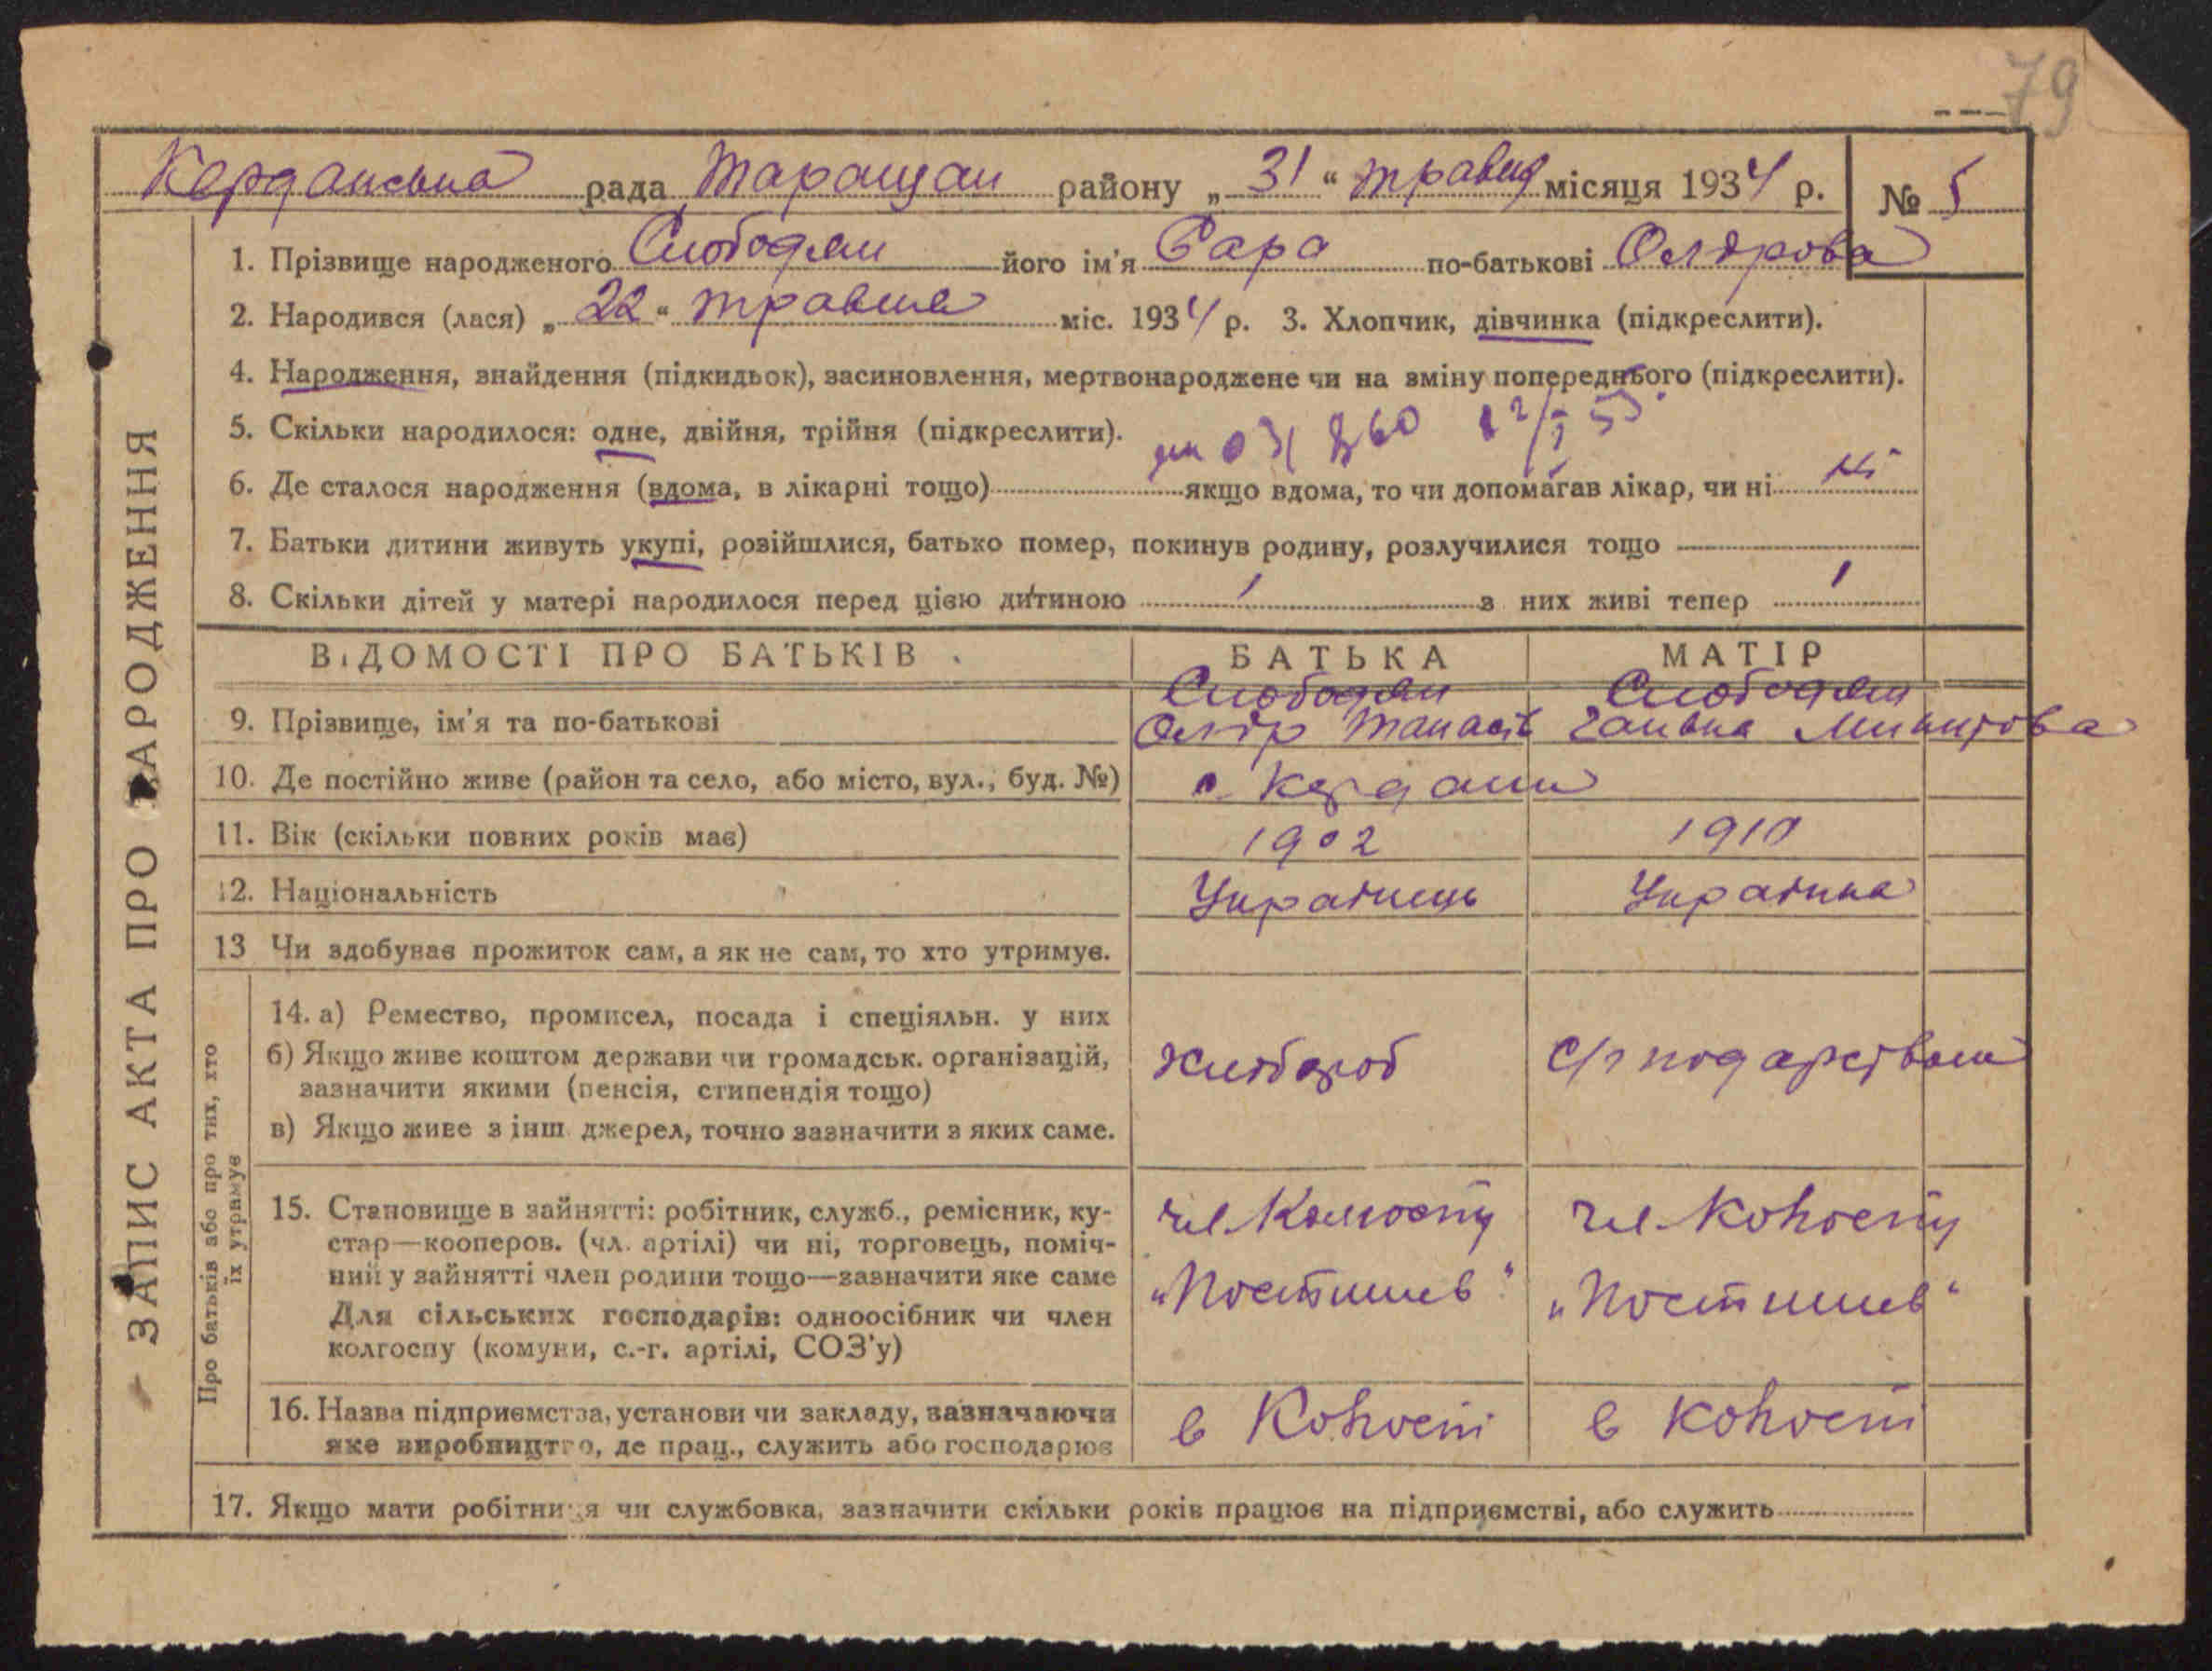 79
Керданська рада Таращан району „31“ травня місяця 1934 р. № 5
1. Прізвище народженого Слободян його ім'я Сара по-батькові Олдрова
2. Народився (лася) „22“ травня міс. 1934 р. 3. Хлопчик, дівчинка (підкреслити).
4. Народження, знайдення (підкидьок), засиновлення, мертвонароджене чи на зміну попереднього (підкреслити).
5. Скільки народилося: одне, двійня, трійня (підкреслити).
6. Де сталося народження (вдома, в лікарні тощо) якщо вдома, то чи допомагав лікар, чи ні ні
7. Батьки дитини живуть укупі, розійшлися, батько помер, покинув родину, розлучилися тощо
8. Скільки дітей у матері народилося перед цією дитиною 1 з них живі тепер 1
ВІДОМОСТІ ПРО БАТЬКІВ БАТЬКА МАТІР
Слободян Слободян
9. Прізвище, ім'я та по-батькові Олдр Танасів Ганвна
10. Де постійно живе (район та село, або місто, вул., буд. №) с. Кердани
11. Вік (скільки повних років має) 1902 1910
12. Національність Українець Українка
13 Чи здобуває прожиток сам, а як не сам, то хто утримує.
14. а) Ремество, промисел, посада і спеціяльн. у них
б) Якщо живе коштом держави чи громадськ. організацій, хлібороб с/гподарством
зазначити якими (пенсія, стипендія тощо)
в) Якщо живе з інш. джерел, точно зазначити з яких саме.
15. Становище в зайнятті: робітник, служб., ремісник, ку- чл. Колгоспу чл. Колгоспу
стар—кооперов. (чл. артілі) чи ні, торговець, поміч-
ний у зайнятті член родини тощо—зазначити яке саме „Постишев“ „Постишев“
Для сільських господарів: одноосібник чи член
колгоспу (комуни, с.-г. артілі, СОЗ'у)
16. Назва підприємства, установи чи закладу, зазначаючи в Колгоспі в Колгоспі
яке виробництво, де прац., служить або господарює
17. Якщо мати робітниця чи службовка, зазначити скільки років працює на підприємстві, або служить
ЗАПИС АКТА ПРО НАРОДЖЕННЯ
Про батьків або про тих, хто
їх утримує